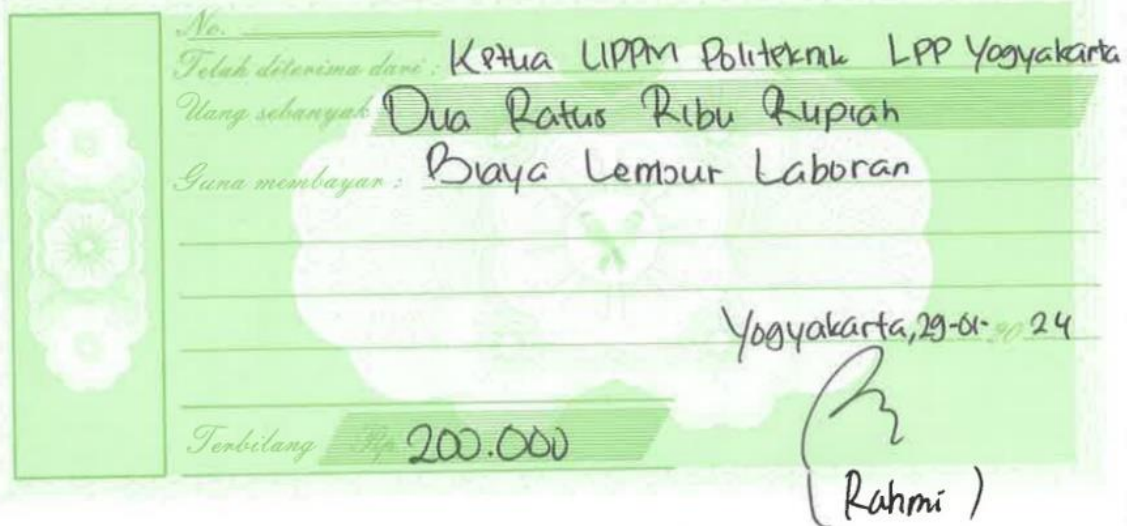 No.
Telah diterima dari : Ketua UPPM Politeknik LPP Yogyakarta
Uang sebanyak Dua Ratus Ribu Rupiah
Guna membayar : Biaya Lembur Laboran
Yogyakarta, 29-01- 20 24
Terbilang Rp 200.000
( Rahmi )